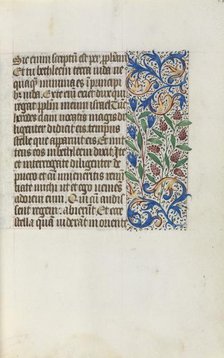 Sic enim scriptū est per prophetā
Et tu bethleem terra iuda ne
quaquā minima es in principi
bus iuda. Ex te enim exiet dux qui
regat pplm meum israel. Tūc
herodes clam vocatis magis di
ligenter didicit eis tempus
stelle que apparuit eis. Et mit
tens eos in bethleem dixit. Ite
et interrogate diligenter de
puero et cum inueneritis renū
tiate michi ut et ego ueniēs
adorem eum. Qui cū audis
sent regem abierunt. Et ecce
stella quā uiderant in oriente